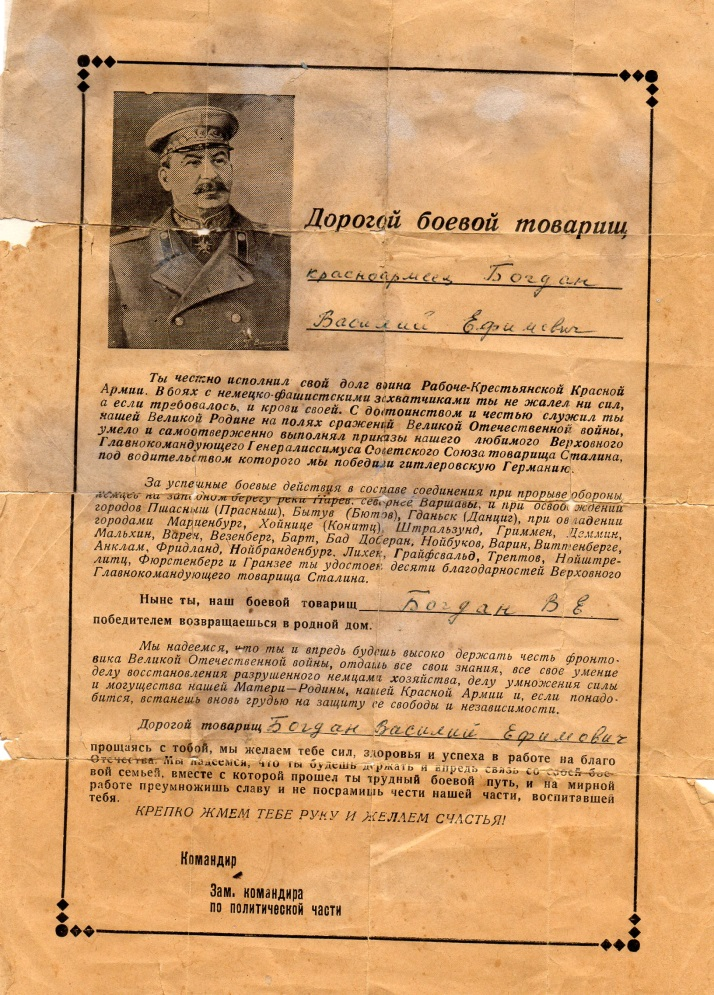 Дорогой боевой товарищ
красноармеец Богдан
Василий Ефимович
Ты честно исполнил свой долг воина Рабоче-Крестьянской Красной
Армии. В боях с немецко-фашистскими захватчиками ты не жалел ни сил,
а если требовалось, и крови своей. С достоинством и честью служил ты
нашей Великой Родине на полях сражений Великой Отечественной войны,
умело и самоотверженно выполнял приказы нашего любимого Верховного
Главнокомандующего Генералиссимуса Советского Союза товарища Сталина,
под водительством которого мы победили гитлеровскую Германию.
За успешные боевые действия в составе соединения при прорыве обороны
немцев на западном берегу реки Нарев, севернее Варшавы, и при освобождении
городов Пшасныш (Прасныш), Бытув (Бютов), Гданьск (Данциг), при овладении
городами Мариенбург, Хойнице (Конитц), Штральзунд, Гриммен, Деммин,
Мальхин, Варен, Везенберг, Барт, Бад Доберан, Нойбуков, Варин, Виттенберге,
Анклам, Фридланд, Нойбранденбург, Лихек, Грайфсвальд, Трептов, Нойштре-
литц, Фюрстенберг и Гранзее ты удостоен десяти благодарностей Верховного
Главнокомандующего товарища Сталина.
Ныне ты, наш боевой товарищ Богдан В Е.
победителем возвращаешься в родной дом.
Мы надеемся, что ты и впредь будешь высоко держать честь фронто-
вика Великой Отечественной войны, отдашь все свои знания, все свое умение
делу восстановления разрушенного немцами хозяйства, делу умножения силы
и могущества нашей Матери—Родины, нашей Красной Армии и, если понадо-
бится, встанешь вновь грудью на защиту ее свободы и независимости.
Дорогой товарищ Богдан Василий Ефимович
прощаясь с тобой, мы желаем тебе сил, здоровья и успеха в работе на благо
Отечества. Мы надеемся, что ты будешь держать и впредь связь со своей бое-
вой семьей, вместе с которой прошел ты трудный боевой путь, и на мирной
работе преумножишь славу и не посрамишь чести нашей части, воспитавшей
тебя.
КРЕПКО ЖМЕМ ТЕБЕ РУКУ И ЖЕЛАЕМ СЧАСТЬЯ!
Командир
Зам. командира
по политической части